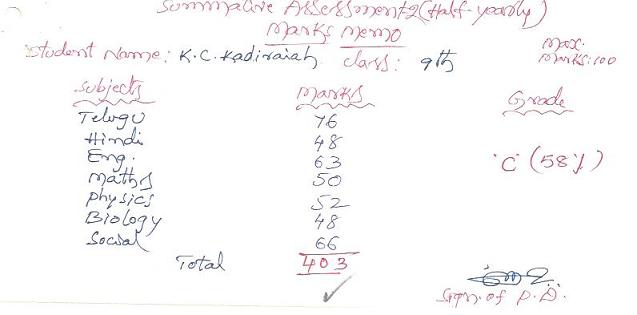 Summative Assessment-2 (Half-yearly)
Marks Memo
Student Name: K.C. Kadiraiah class: 9th Max. Marks: 100
Subjects Marks Grade
Telugu 76
Hindi 48
Eng. 63
Maths 50
Physics 52
Biology 48
Social 66
'C' (58%)
Total 403
Sign. of P.D.